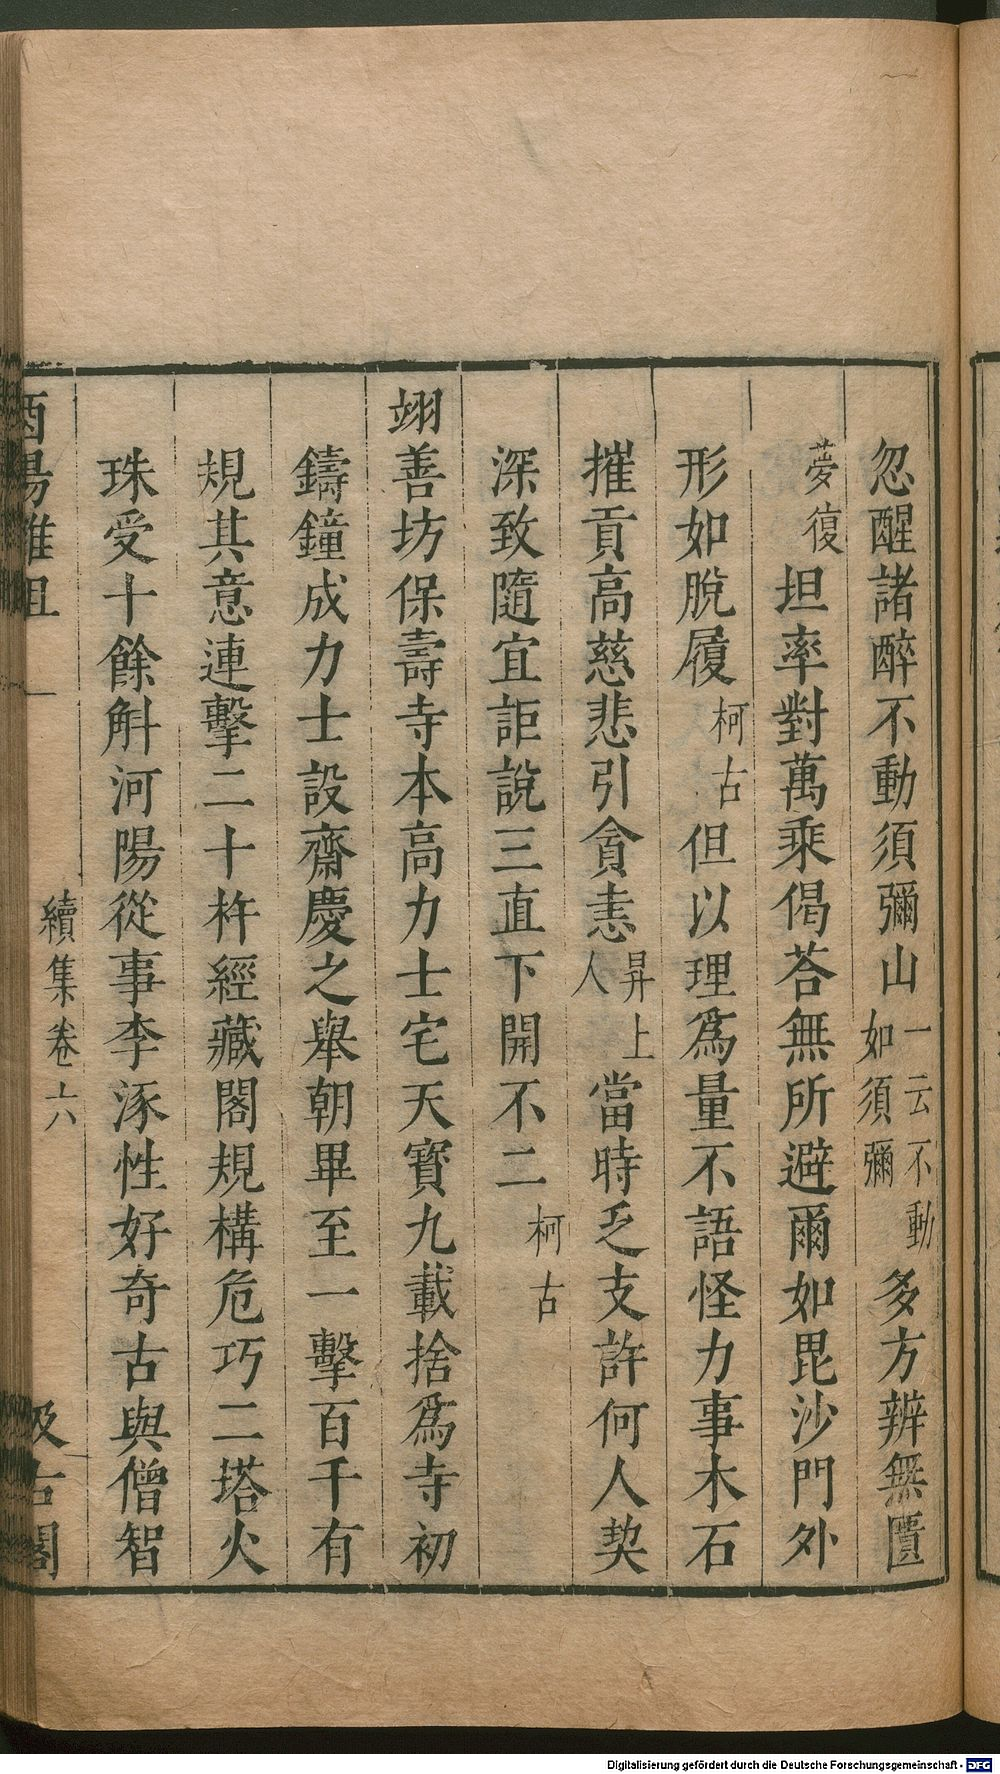 忽醒諸醉不動須彌山一云不動如須彌多方辨無匱
夢復坦率對萬乘偈荅無所避爾如毘沙門外
形如脫履柯古但以理爲量不語怪力事木石
摧貢高慈悲引貪恚昇上人當時乏支許何人契
深致隨宜詎說三直下開不二柯古
翊善坊保壽寺本高力士宅天寶九載捨爲寺初
鑄鐘成力士設齋慶之舉朝畢至一擊百千有
規其意連擊二十杵經藏閣規構危巧二塔火
珠受十餘斛河陽從事李涿性好奇古與僧智
酉陽雜俎 續集卷六 汲古閣
Digitalisierung gefördert durch die Deutsche Forschungsgemeinschaft - DFG